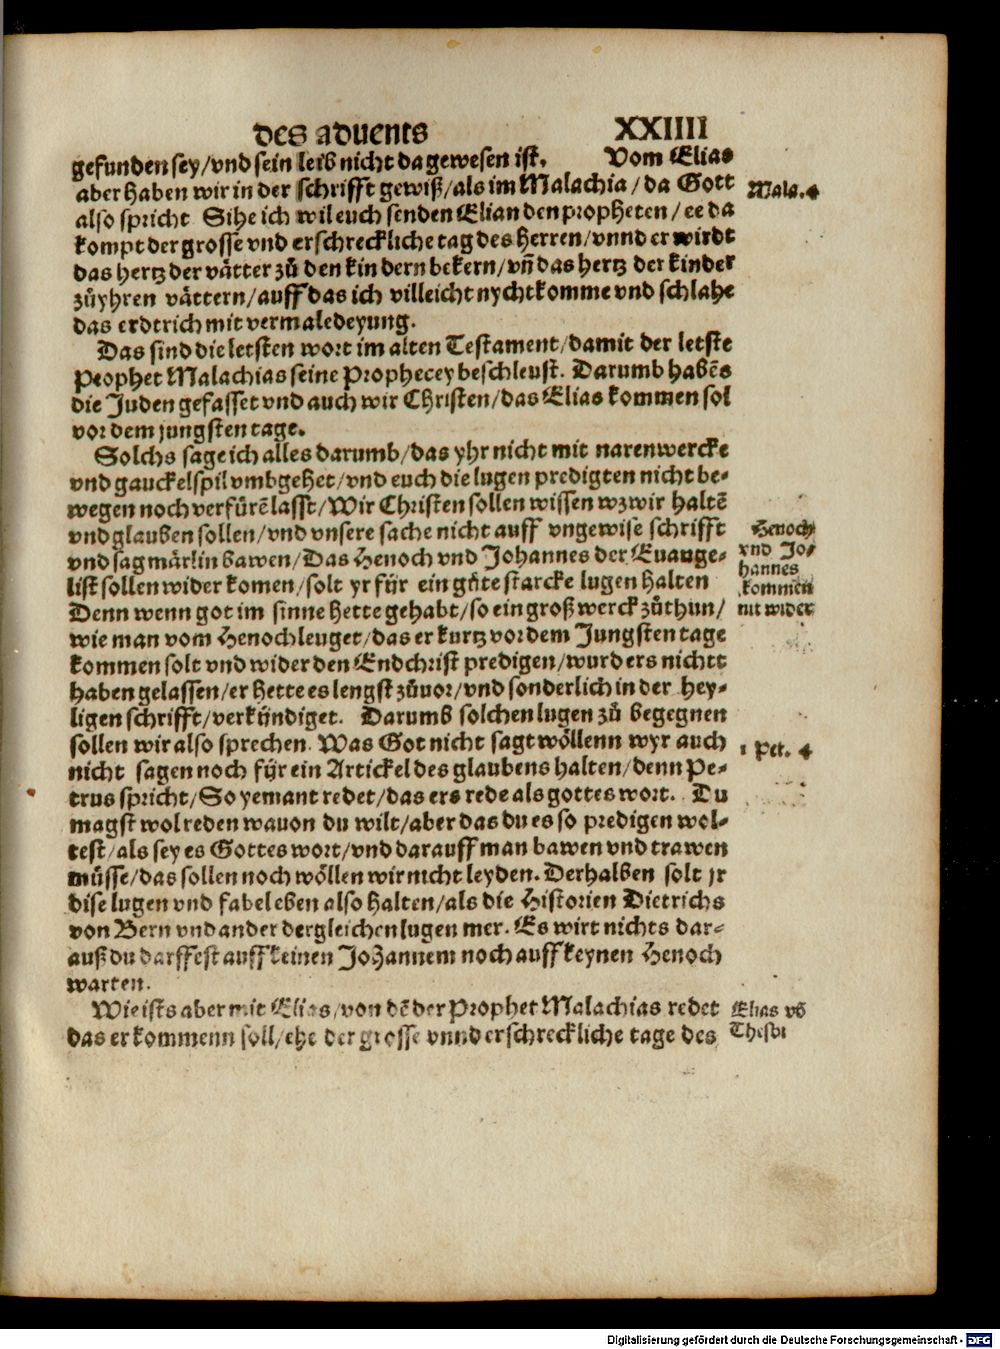 des aduents XXIIII
gefunden sey/vnd sein leib nicht da gewesen ist. Vom Elias
aber haben wir in der schrifft gewiß/als im Malachia/da Gott
Mala.4
also spricht Sihe ich wil euch senden Elian den propheten/ee da
kompt der grosse vnd erschreckliche tag des Herren/vnnd er wirdt
das hertz der vätter zů den kindern bekern/vñ das hertz der kinder
zůyhren vättern/auff das ich villeicht nycht komme vnd schlahe
das erdtrich mit vermaledeyung.
Das sind die letsten wort im alten Testament/damit der letste
Prophet Malachias seine Prophecey beschleust. Darumb habēs
die Juden gefasset vnd auch wir Christen/das Elias kommen sol
vor dem jungsten tage.
Solchs sage ich alles darumb/das yhr nicht mit narenwercke
vnd gauckelspil vmbgehet/vnd euch die lugen predigten nicht be-
wegen noch verfürē lasst/Wir Christen sollen wissen wz wir haltē
vnd glauben sollen/vnd vnsere sache nicht auff vngewise schrifft
vnd sagmärlin bawen/Das Henoch vnd Johannes der Euange-
list sollen wider komen/solt yr für ein gůte starcke lugen halten
Henoch
vnd Jo-
hannes
kommen
nit wider
Denn wenn got im sinne hette gehabt/so ein groß werck zůthun/
wie man vom Henoch leuget/das er kurtz vor dem Jungsten tage
kommen solt vnd wider den Endchrist predigen/wurd ers nichtt
haben gelassen/er hette es lengst zůuor/vnd sonderlich in der hey-
ligen schrifft/verkündiget. Darumb solchen lugen zů begegnen
sollen wir also sprechen. Was Got nicht sagt wöllenn wyr auch
1 Pet. 4
nicht sagen noch für ein Artickel des glaubens halten/denn Pe-
trus spricht/So yemant redet/das ers rede als gottes wort. Du
magst wol reden wauon du wilt/aber das du es so predigen wol-
test/als sey es Gottes wort/vnd darauff man bawen vnd trawen
müsse/das sollen noch wöllen wir nicht leyden. Derhalben solt jr
dise lugen vnd fabel eben also halten/als die Historien Dietrichs
von Bern vnd ander dergleichen lugen mer. Es wirt nichts dar-
auß du darffest auff keinen Johannem noch auff keynen Henoch
warten.
Wie ists aber mit Elias/von dē der Prophet Malachias redet
das er kommenn soll/ehe der grosse vnnd erschreckliche tage des
Elias vō
Thesbi
Digitalisierung gefördert durch die Deutsche Forschungsgemeinschaft - DFG